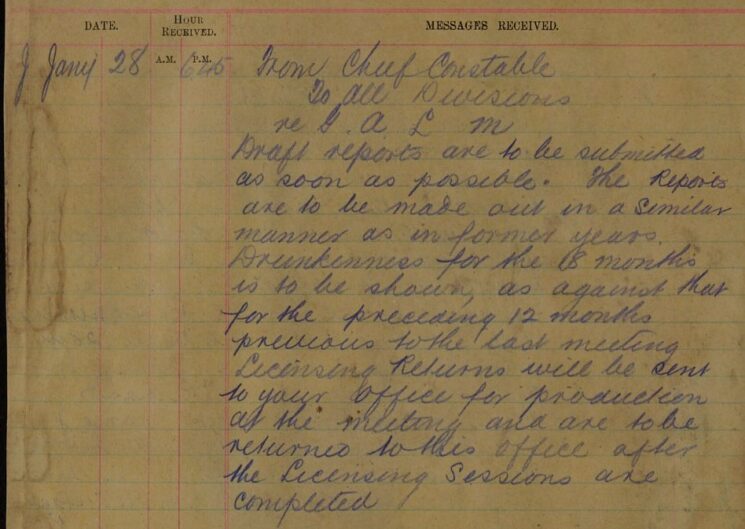 DATE. HOUR RECEIVED. MESSAGES RECEIVED.
A.M. P.M.
Jany 28 645 From Chief Constable
To All Divisions
re G. A L M
Draft reports are to be submitted
as soon as possible. The Reports
are to be made out in a similar
manner as in former years.
Drunkenness for the 18 months
is to be shown, as against that
for the preceding 12 months
previous to the last meeting
Licensing Returns will be sent
to your office for production
at the meeting and are to be
returned to this office after
the Licensing Sessions are
completed